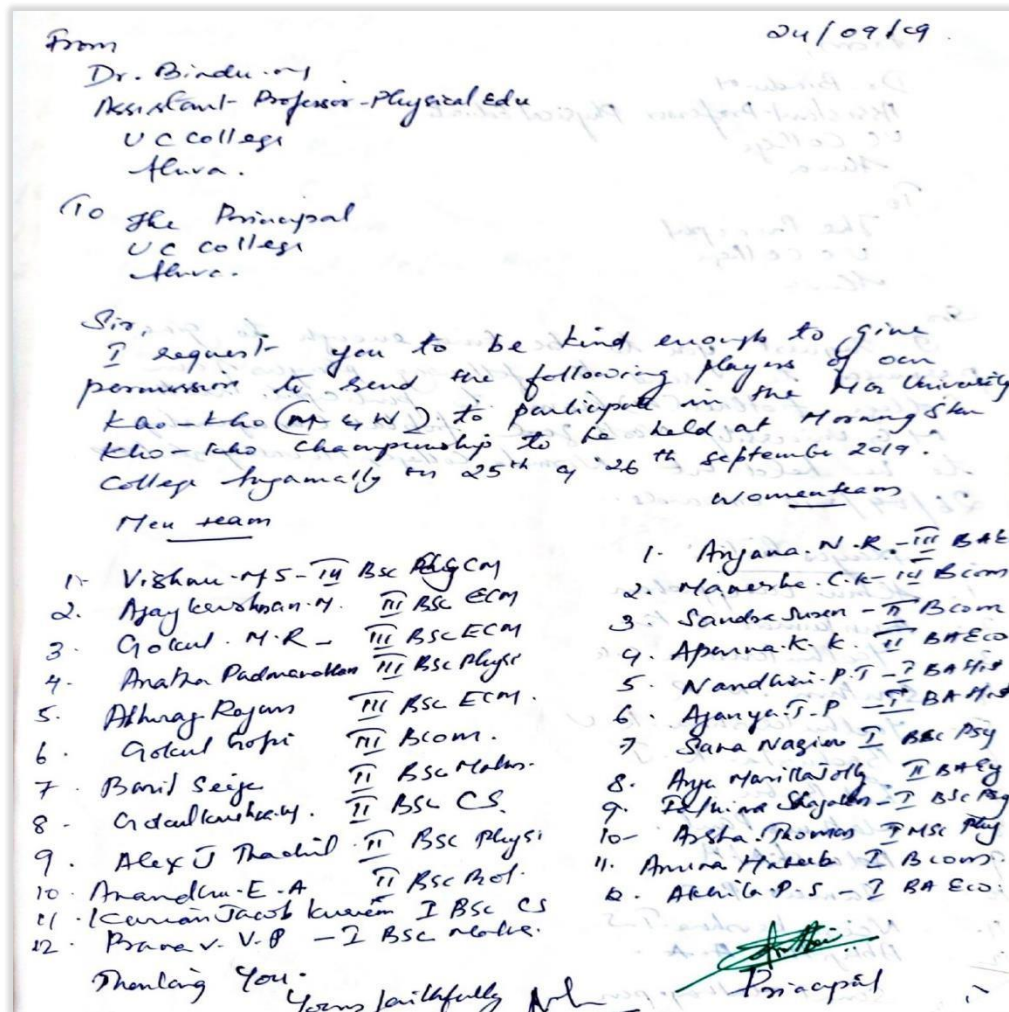 24/09/19.
From
Dr. Bindu.M
Assistant Professor-Physical Edu
U C College
Aluva.
To The Principal
U C College
Aluva.
Sir,
I request you to be kind enough to give
permission to send the following players of our
Kho-Kho (M & W) to participate in the MG University
Kho-Kho Championship to be held at Morning Star
College Angamally on 25th & 26th September 2019.
Men team
1. Vishnu.M S - III Bsc ECM
2. Ajaykrishnan.M. III BSC ECM
3. Gokul. M.R - III BSC ECM
4. Padmanabhan III BSC Physi
5. Rajan III BSC ECM.
6. Gokul Gopi III Bcom.
7. Basil II BSC Maths.
8. Gokulkrishna.M. II BSC CS.
9. Alex J Thachil II BSC Physi
10. Anandhu.E.A II BSC Bot.
11. Jacob I BSC CS
12. Pranav. V.P - I BSC Maths.
Women team
1. Anjana.N.R. - III BAE
2. C.K - III Bcom
3. Sandra Susen - II Bcom
4. Aparna.K.K. II BAEco
5. Nandhini.P.T - I BAHist
6. T.P - I BAHist
7. Sana I BSC Psy
8. II BAEy
9. I BSC Psy
10. Thomas I MSC Phy
11. Amina I Bcom
12. Akhila.P.S - I BA Eco.
Thanking You.
Yours faithfully
Principal